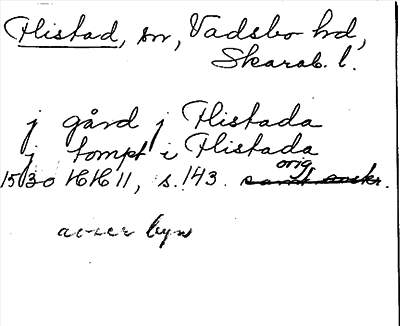 Flistad, sn, Vadsbo hd,
Skarab. l.
j gård j Flistada
j tompt i Flistada
1530 HH 11, s. 143. orig.
avser byn